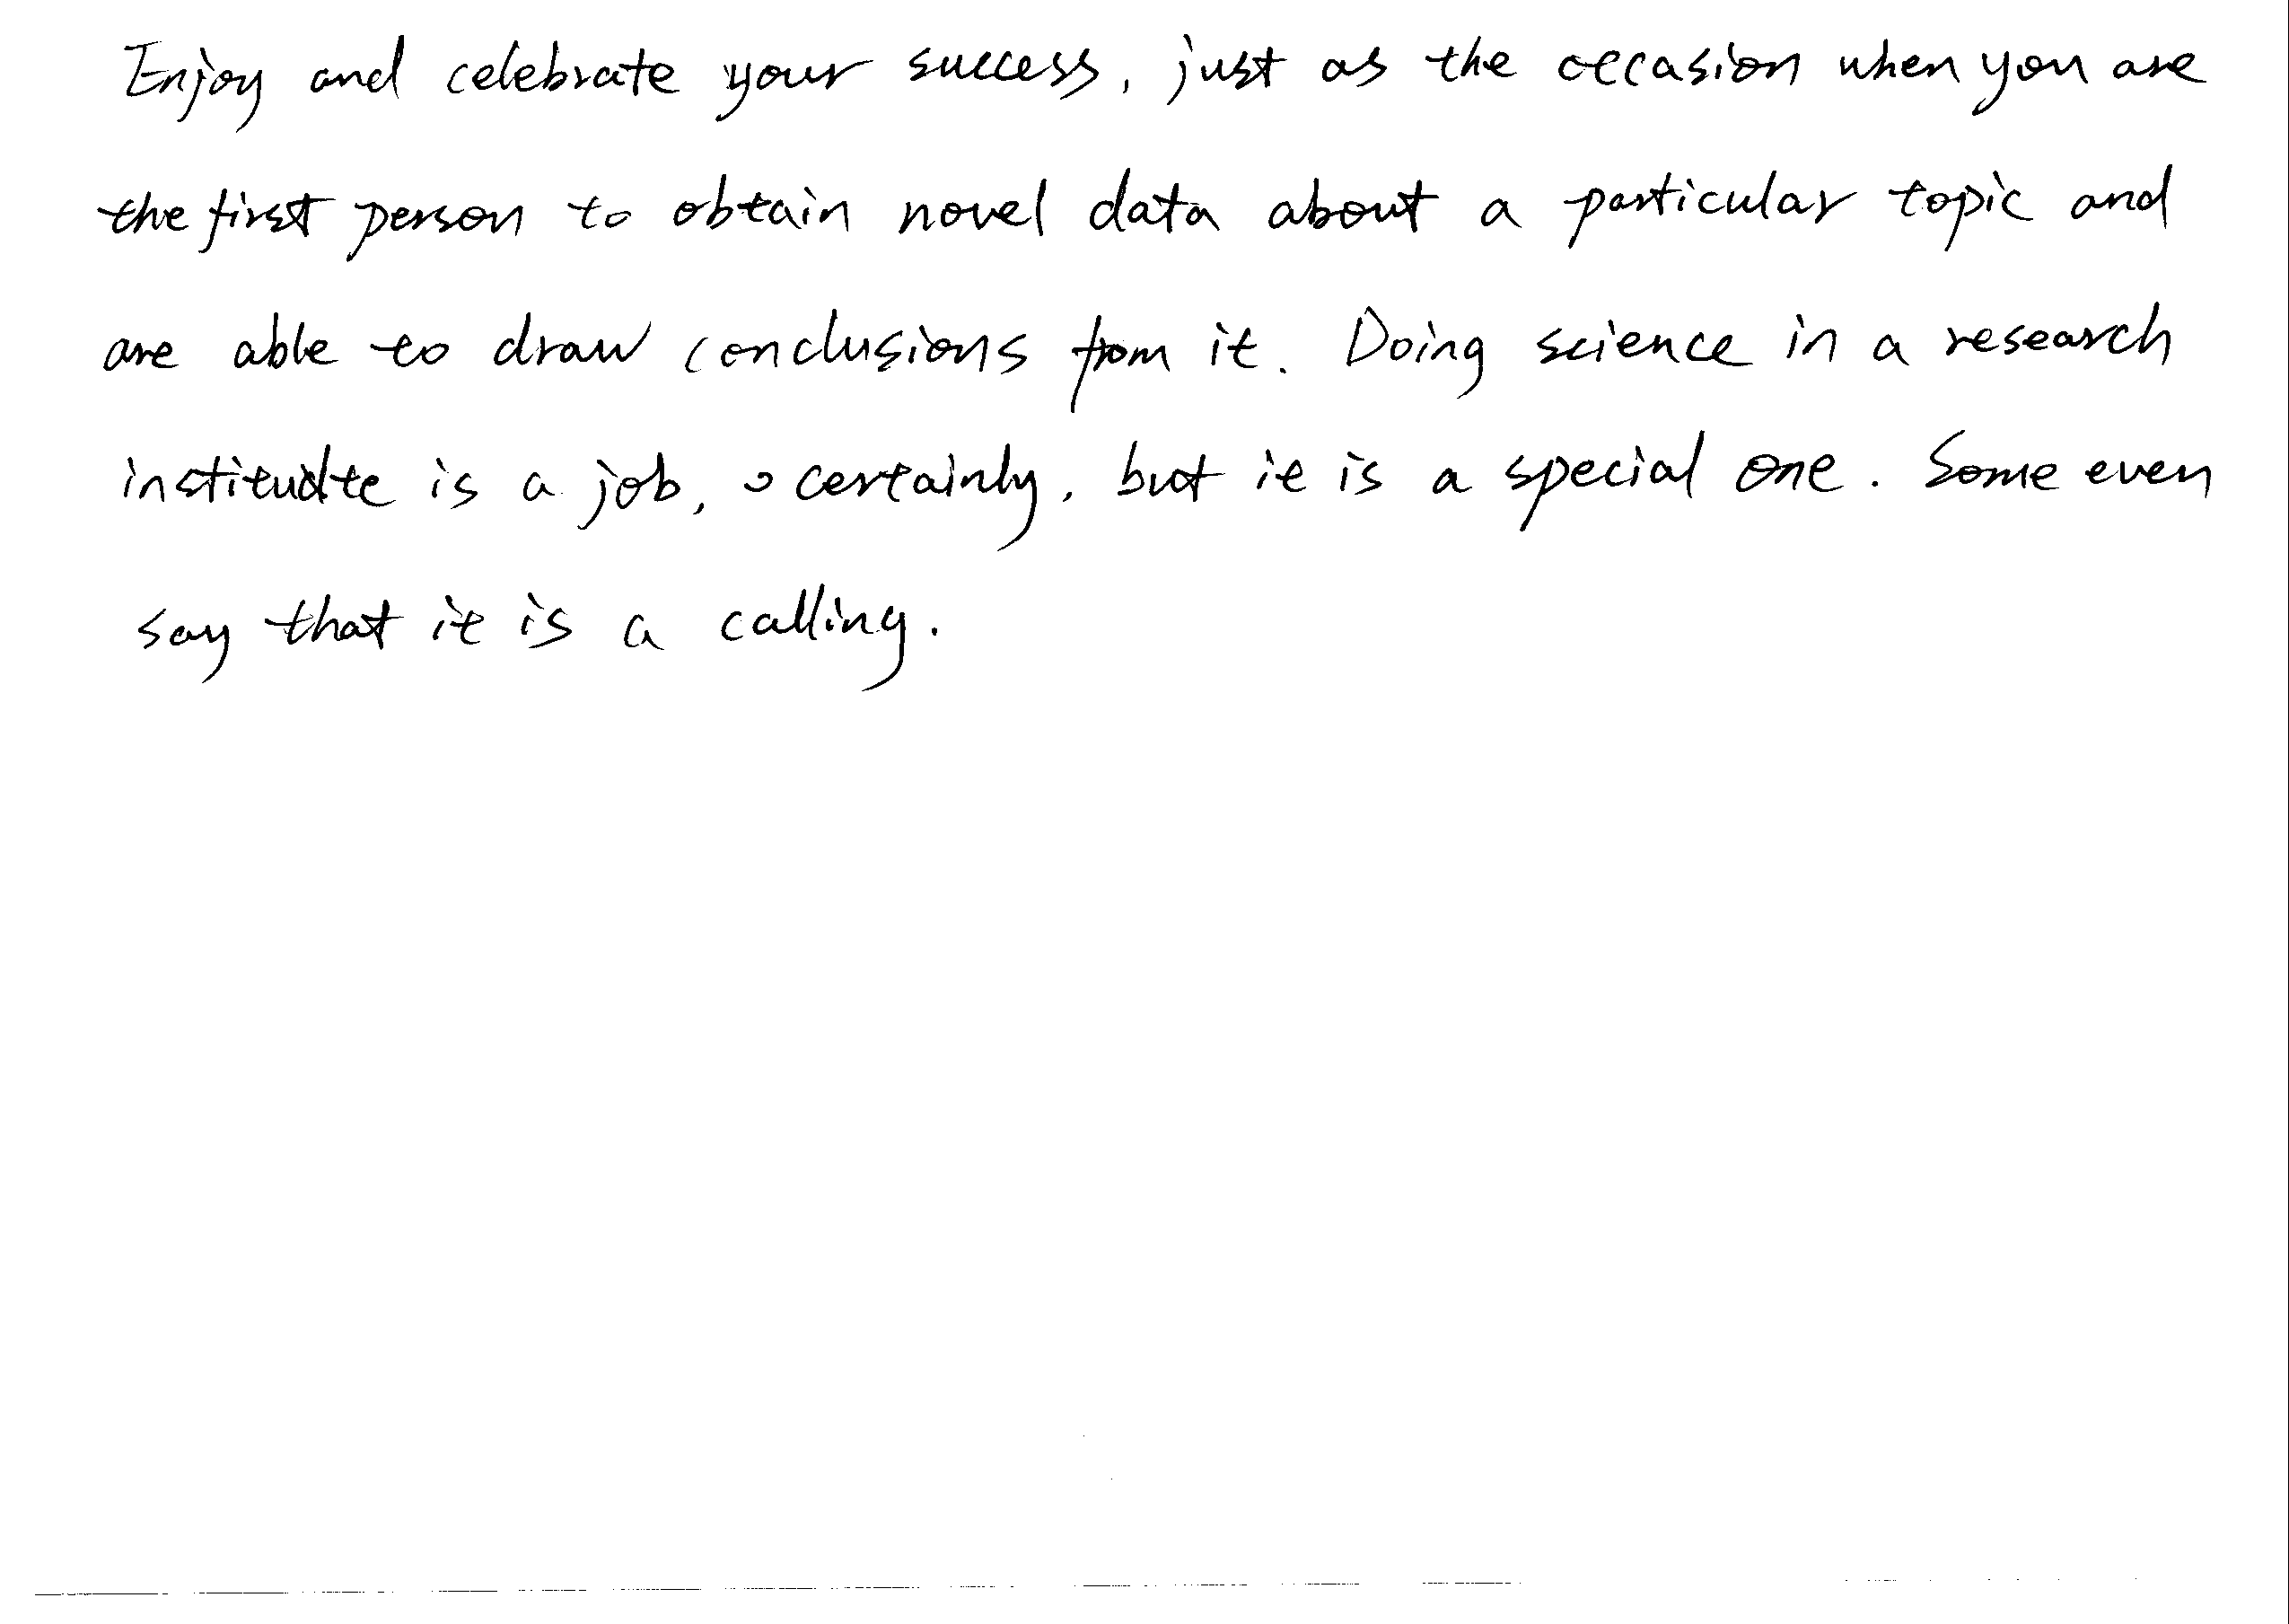 Enjoy and celebrate your success, just as the occasion when you are
the first person to obtain novel data about a particular topic and
are able to draw conclusions from it. Doing science in a research
institudte is a job, certainly, but it is a special one. Some even
say that it is a calling.